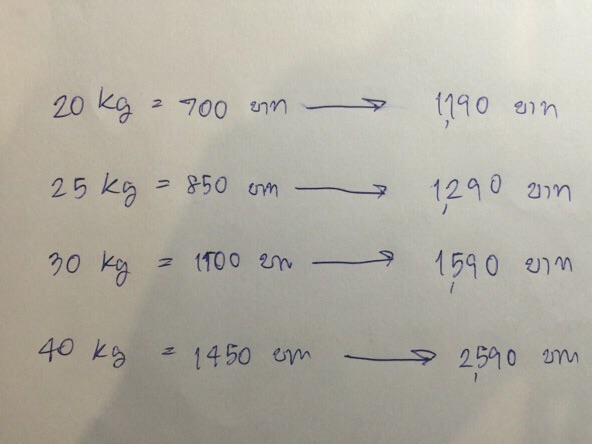 20 kg = 700 บาท → 1,190 บาท
25 kg = 850 บาท → 1,290 บาท
30 kg = 1100 บาท → 1,590 บาท
40 kg = 1450 บาท → 2,590 บาท